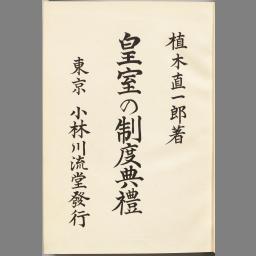 植木直一郎著
皇室の制度典禮
東京 小林川流堂發行